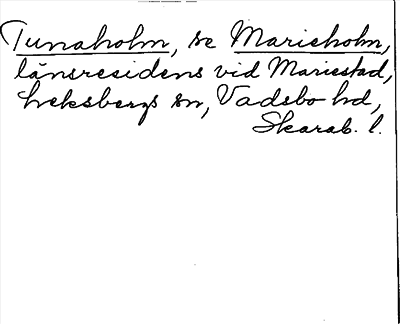 Tunaholm, se Marieholm,
länsresidens vid Mariestad,
Leksbergs sn, Vadsbo hd,
Skarab. l.